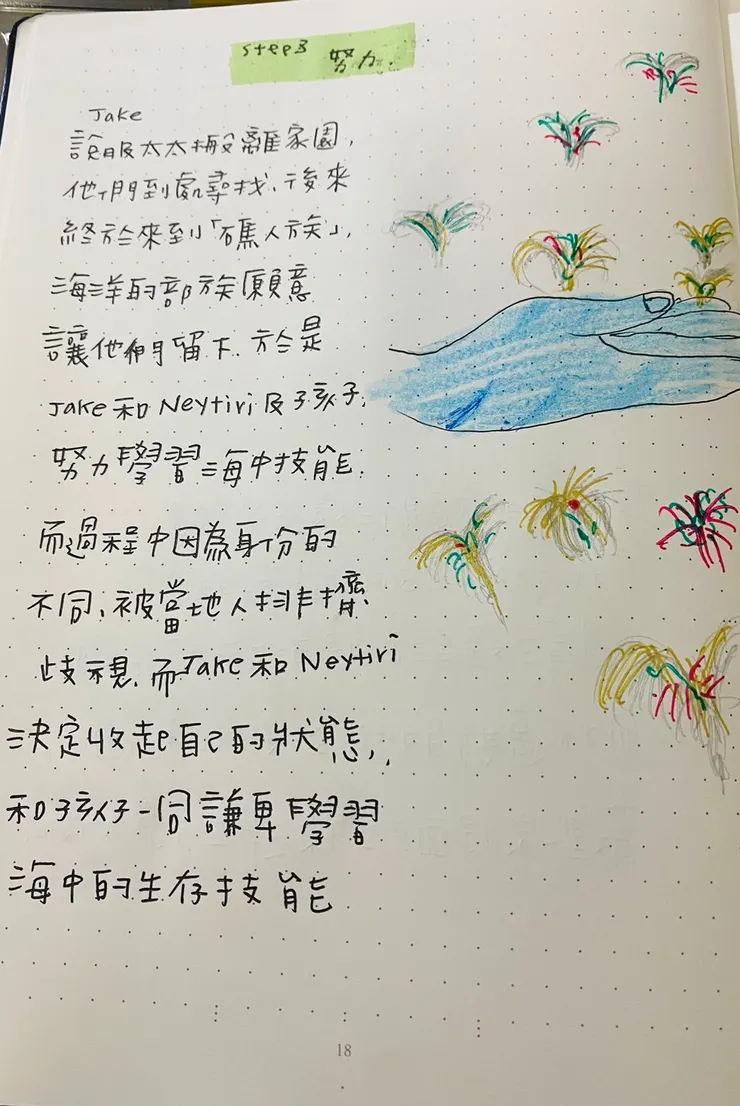 step3 努力.
Jake
說服太太搬離家園,
他們到處尋找、後來
終於來到「碼人族」,
海洋的部族願意
讓他們留下、於是
Jake 和 Neytiri 及孩子,
努力學習海中技能.
而過程中因為身份的
不同、被當地人排擠、
歧視、而Jake 和 Neytiri
決定收起自己的狀態,
和孩子一同謙卑學習
海中的生存技能
18